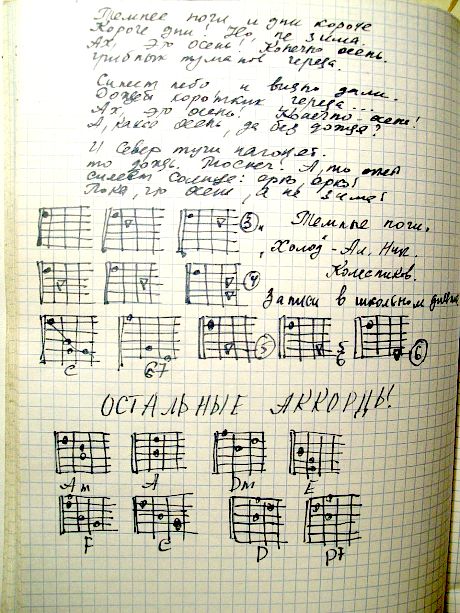 Темнее ночи и дни короче
Короче дни! Но, не зима.
Ах, это осень! Конечно осень.
Грибных туманов череда.
Синеет небо и видно дали.
Дождей коротких череда...
Ах, это осень! Конечно осень!
А, какое осень, да без дождя?
И Север тучи нагоняет.
то дождь, то снег! А, то
сияет Солнце: ярко ярко!
Пока, что осень, а не зима!
3 "Темные ночи.
"Холод" - Ал. Ник.
Колесников.
4
Записи в школьном
C G7 5 5 6 6
ОСТАЛЬНЫЕ АККОРДЫ!
Am A Dm E
F C D D7